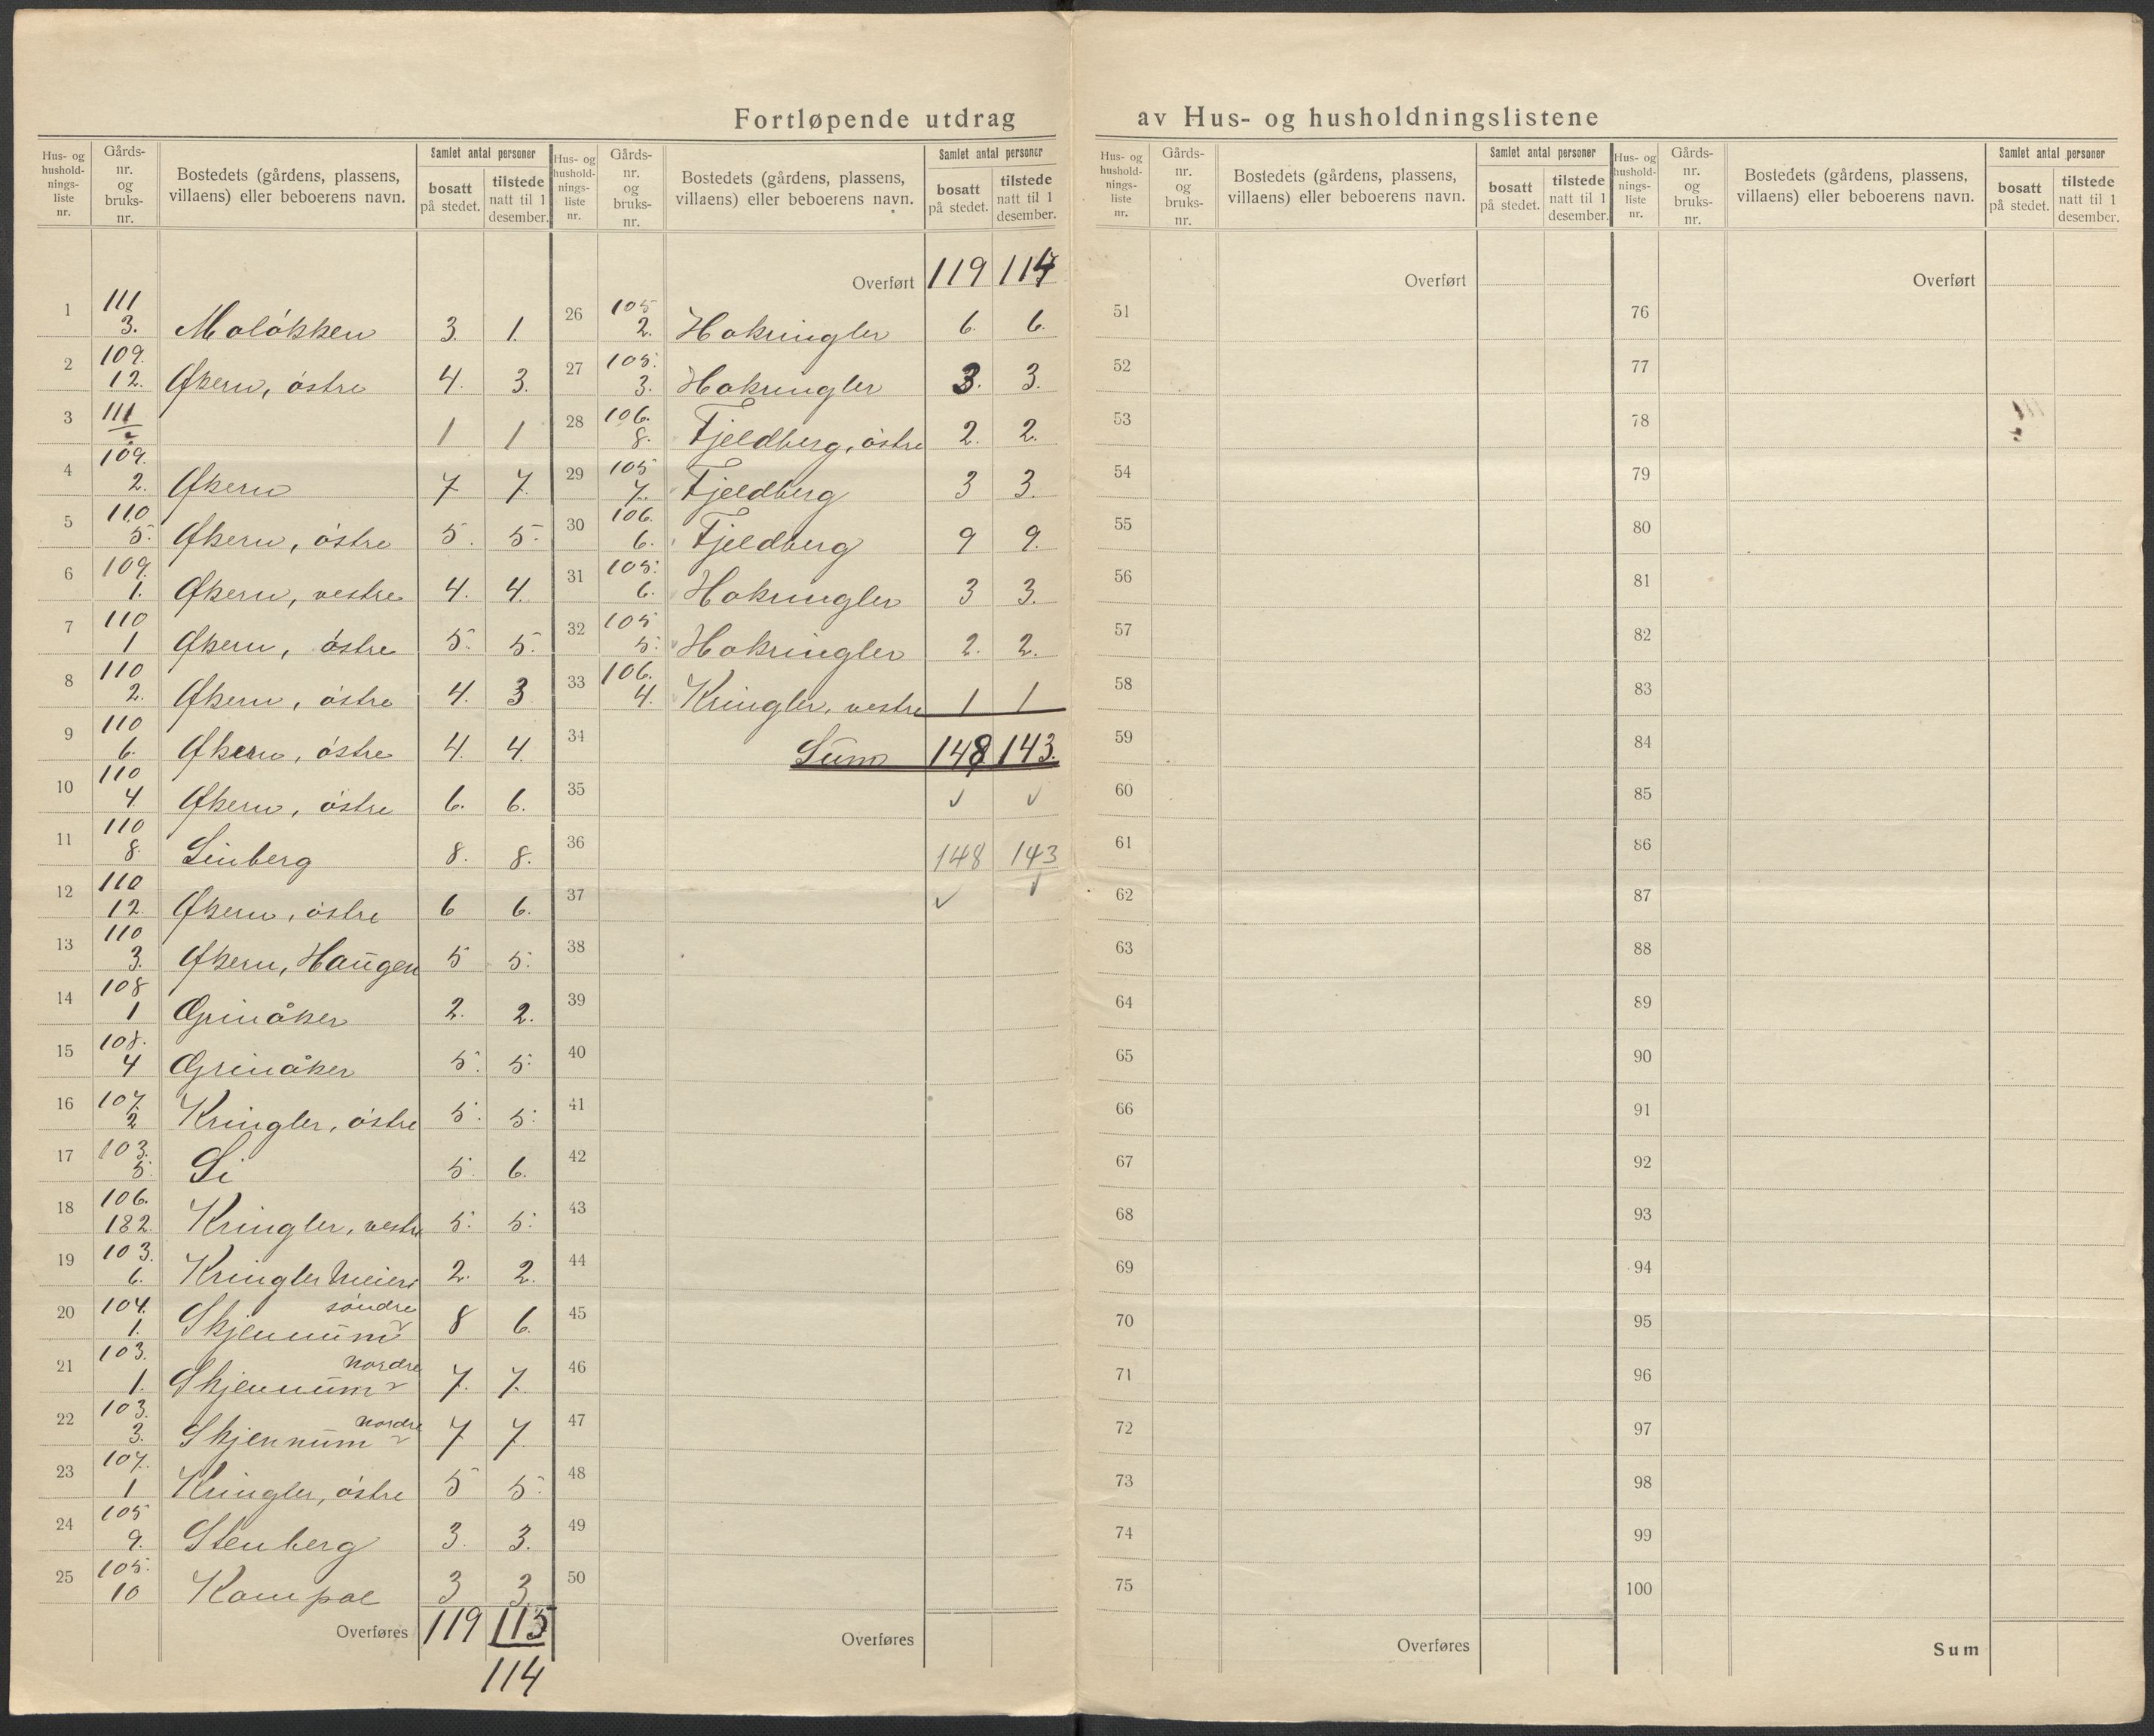 Fortløpende utdrag av Hus- og husholdningslistene
Hus- og hushold-nings-liste nr. | Gårds-nr. og bruks-nr. | Bostedets (gårdens, plassens, villaens) eller beboerens navn. | Samlet antal personer | bosatt på stedet. | tilstede natt til 1 desember.
1 111 3. Moløkken 3. 1.
2 109. 12. Økern, østre 4. 3.
3 111 1 1
4 109. 2. Økern 7 7.
5 110 5. Økern, østre 5. 5.
6 109. 1. Økern, vestre 4. 4.
7 110 1 Økern, østre 5. 5.
8 110 2. Økern, østre 4. 3
9 110 6. Økern, østre 4. 4.
10 110 4 Økern, østre 6. 6.
11 110 8. Linberg 8. 8.
12 110 12. Økern, østre 6 6.
13 110 3. Økern, Haugen 5 5.
14 108 1 Grinåker 2. 2.
15 108. 4 Grinåker 5. 5.
16 107. 2 Kringler, østre 5. 5.
17 103. 5. Li 5. 6.
18 106. 182. Kringler, vestre 5. 5.
19 103. 6. Kringler Meieri 2. 2.
20 104. 1. Skjennum søndre 8 6.
21 103. 1. Skjennum nordre 7. 7.
22 103. 3. Skjennum nordre 7 7
23 107. 1 Kringler, østre 5 5.
24 105 9. Stenberg 3. 3.
25 105. 10 Kampae 3 3.
Overføres 119 113
114
Hus- og hushold-nings-liste nr. | Gårds-nr. og bruks-nr. | Bostedets (gårdens, plassens, villaens) eller beboerens navn. | Samlet antal personer | bosatt på stedet. | tilstede natt til 1 desember.
Overført 119 114
26 105 2. Hokringler 6. 6.
27 105. 3. Hokringler 3. 3.
28 106. 8. Fjeldberg, østre 2. 2.
29 105 7. Fjeldberg 3 3.
30 106. 6. Fjeldberg 9 9.
31 105. 6. Hokringler 3 3.
32 105 5. Hokringler 2. 2.
33 106. 4. Kringler, vestre 1 1
34 Sum 148 143.
35
36 148 143
37
38
39
40
41
42
43
44
45
46
47
48
49
50
Overføres
Hus- og hushold-nings-liste nr. | Gårds-nr. og bruks-nr. | Bostedets (gårdens, plassens, villaens) eller beboerens navn. | Samlet antal personer | bosatt på stedet. | tilstede natt til 1 desember.
Overført
51
52
53
54
55
56
57
58
59
60
61
62
63
64
65
66
67
68
69
70
71
72
73
74
75
Overføres
Hus- og hushold-nings-liste nr. | Gårds-nr. og bruks-nr. | Bostedets (gårdens, plassens, villaens) eller beboerens navn. | Samlet antal personer | bosatt på stedet. | tilstede natt til 1 desember.
Overført
76
77
78
79
80
81
82
83
84
85
86
87
88
89
90
91
92
93
94
95
96
97
98
99
100
Sum